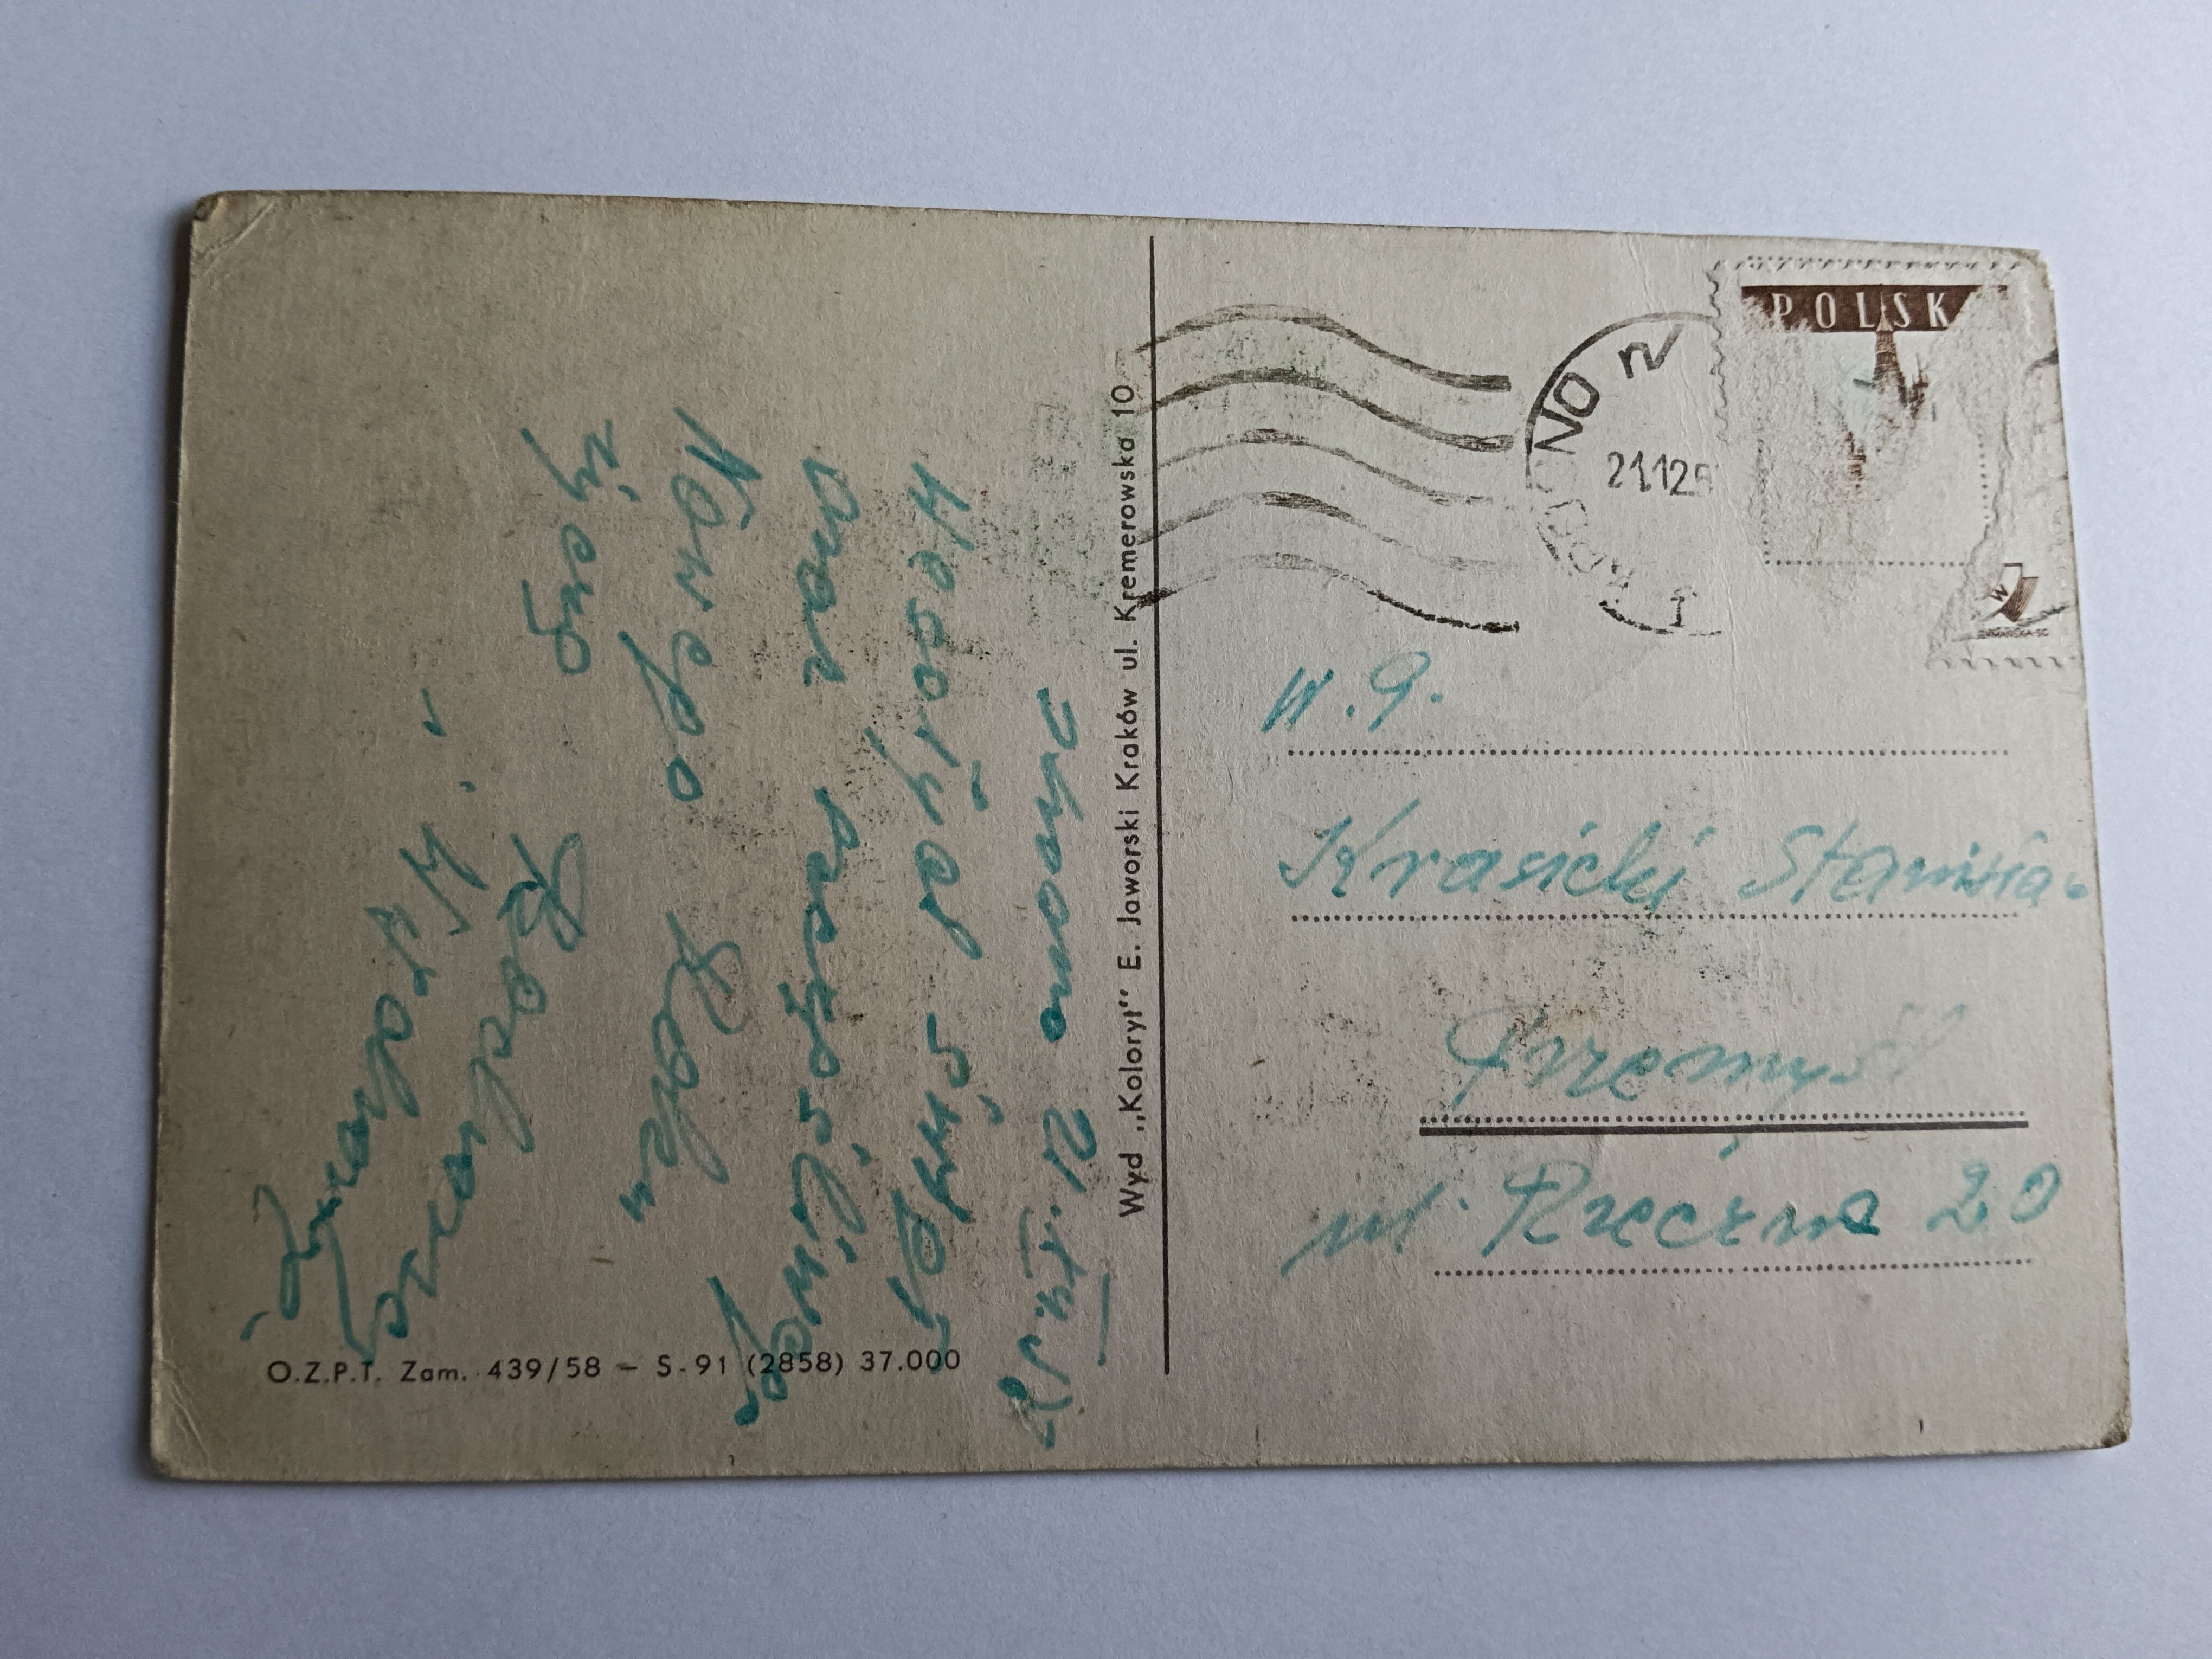 POLSK
NO n
21.12.5
W.P.
Krasicki Stanisła
Przemyśl
ul. Rzeczna 20
Wyd „Koloryt" E. Jaworski Kraków ul. Kremerowska 10
O.Z.P.T. Zam. 439/58 — S-91 (2858) 37.000
Krosno 21.XII.58
Wesołych Świąt
oraz szczęśliwego
Nowego Roku
życzą